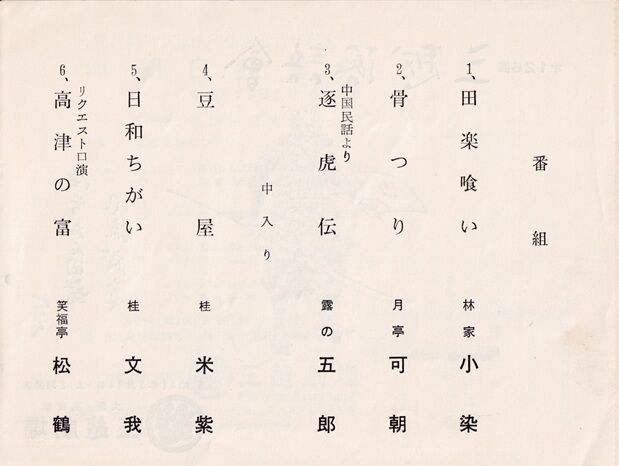 番組
1、田楽喰い 林家 小染
2、骨つり 月亭 可朝
中国民話より
3、逐虎伝 露の 五郎
中入り
4、豆屋 桂 米紫
5、日和ちがい 桂 文我
リクエスト口演
6、高津の富 笑福亭 松鶴